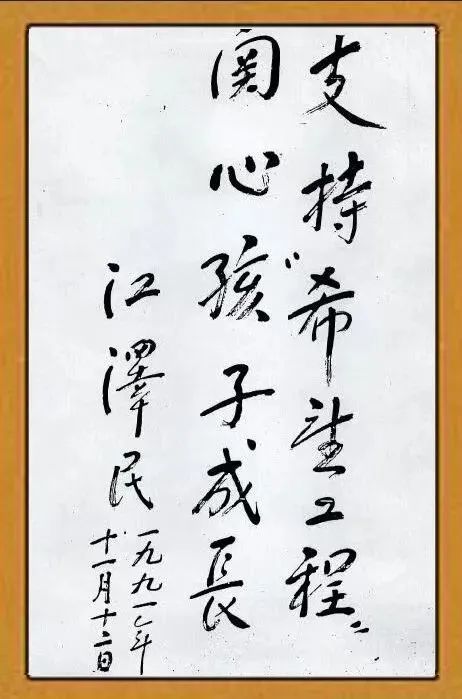 支持“希望工程”
関心孩子成長
江澤民
一九九一年
十一月十二日